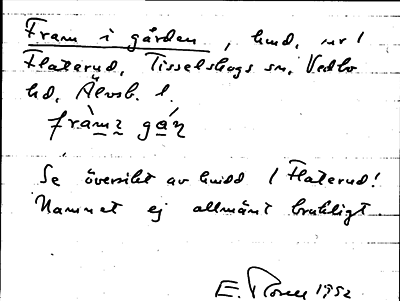 Fram i gården, hmd. nr 1
Flaterud, Tisselskogs sn, Vedbo
hd, Älvsb. l.
fràmɪ gá̱ɳ
Se översikt av hmdd i Flaterud!
Namnet ej allmänt brukligt
E. 1952